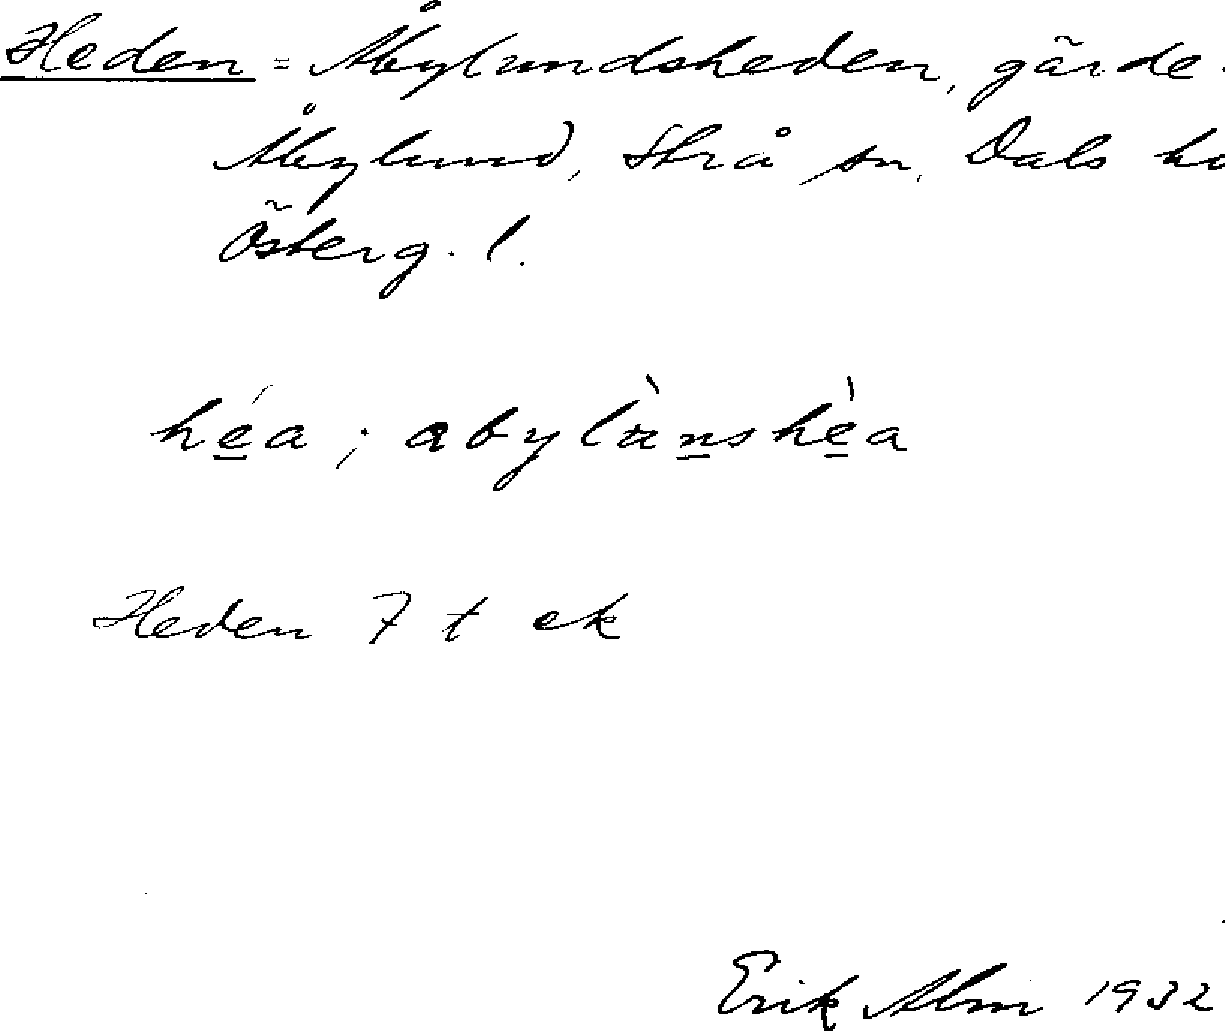 Heden = Åbylundsheden, gärde.
Åbylund, Strå sn, Dals
Österg. l.
héa; abylànshèa
Heden 7 t ek
Erik Alm 1932